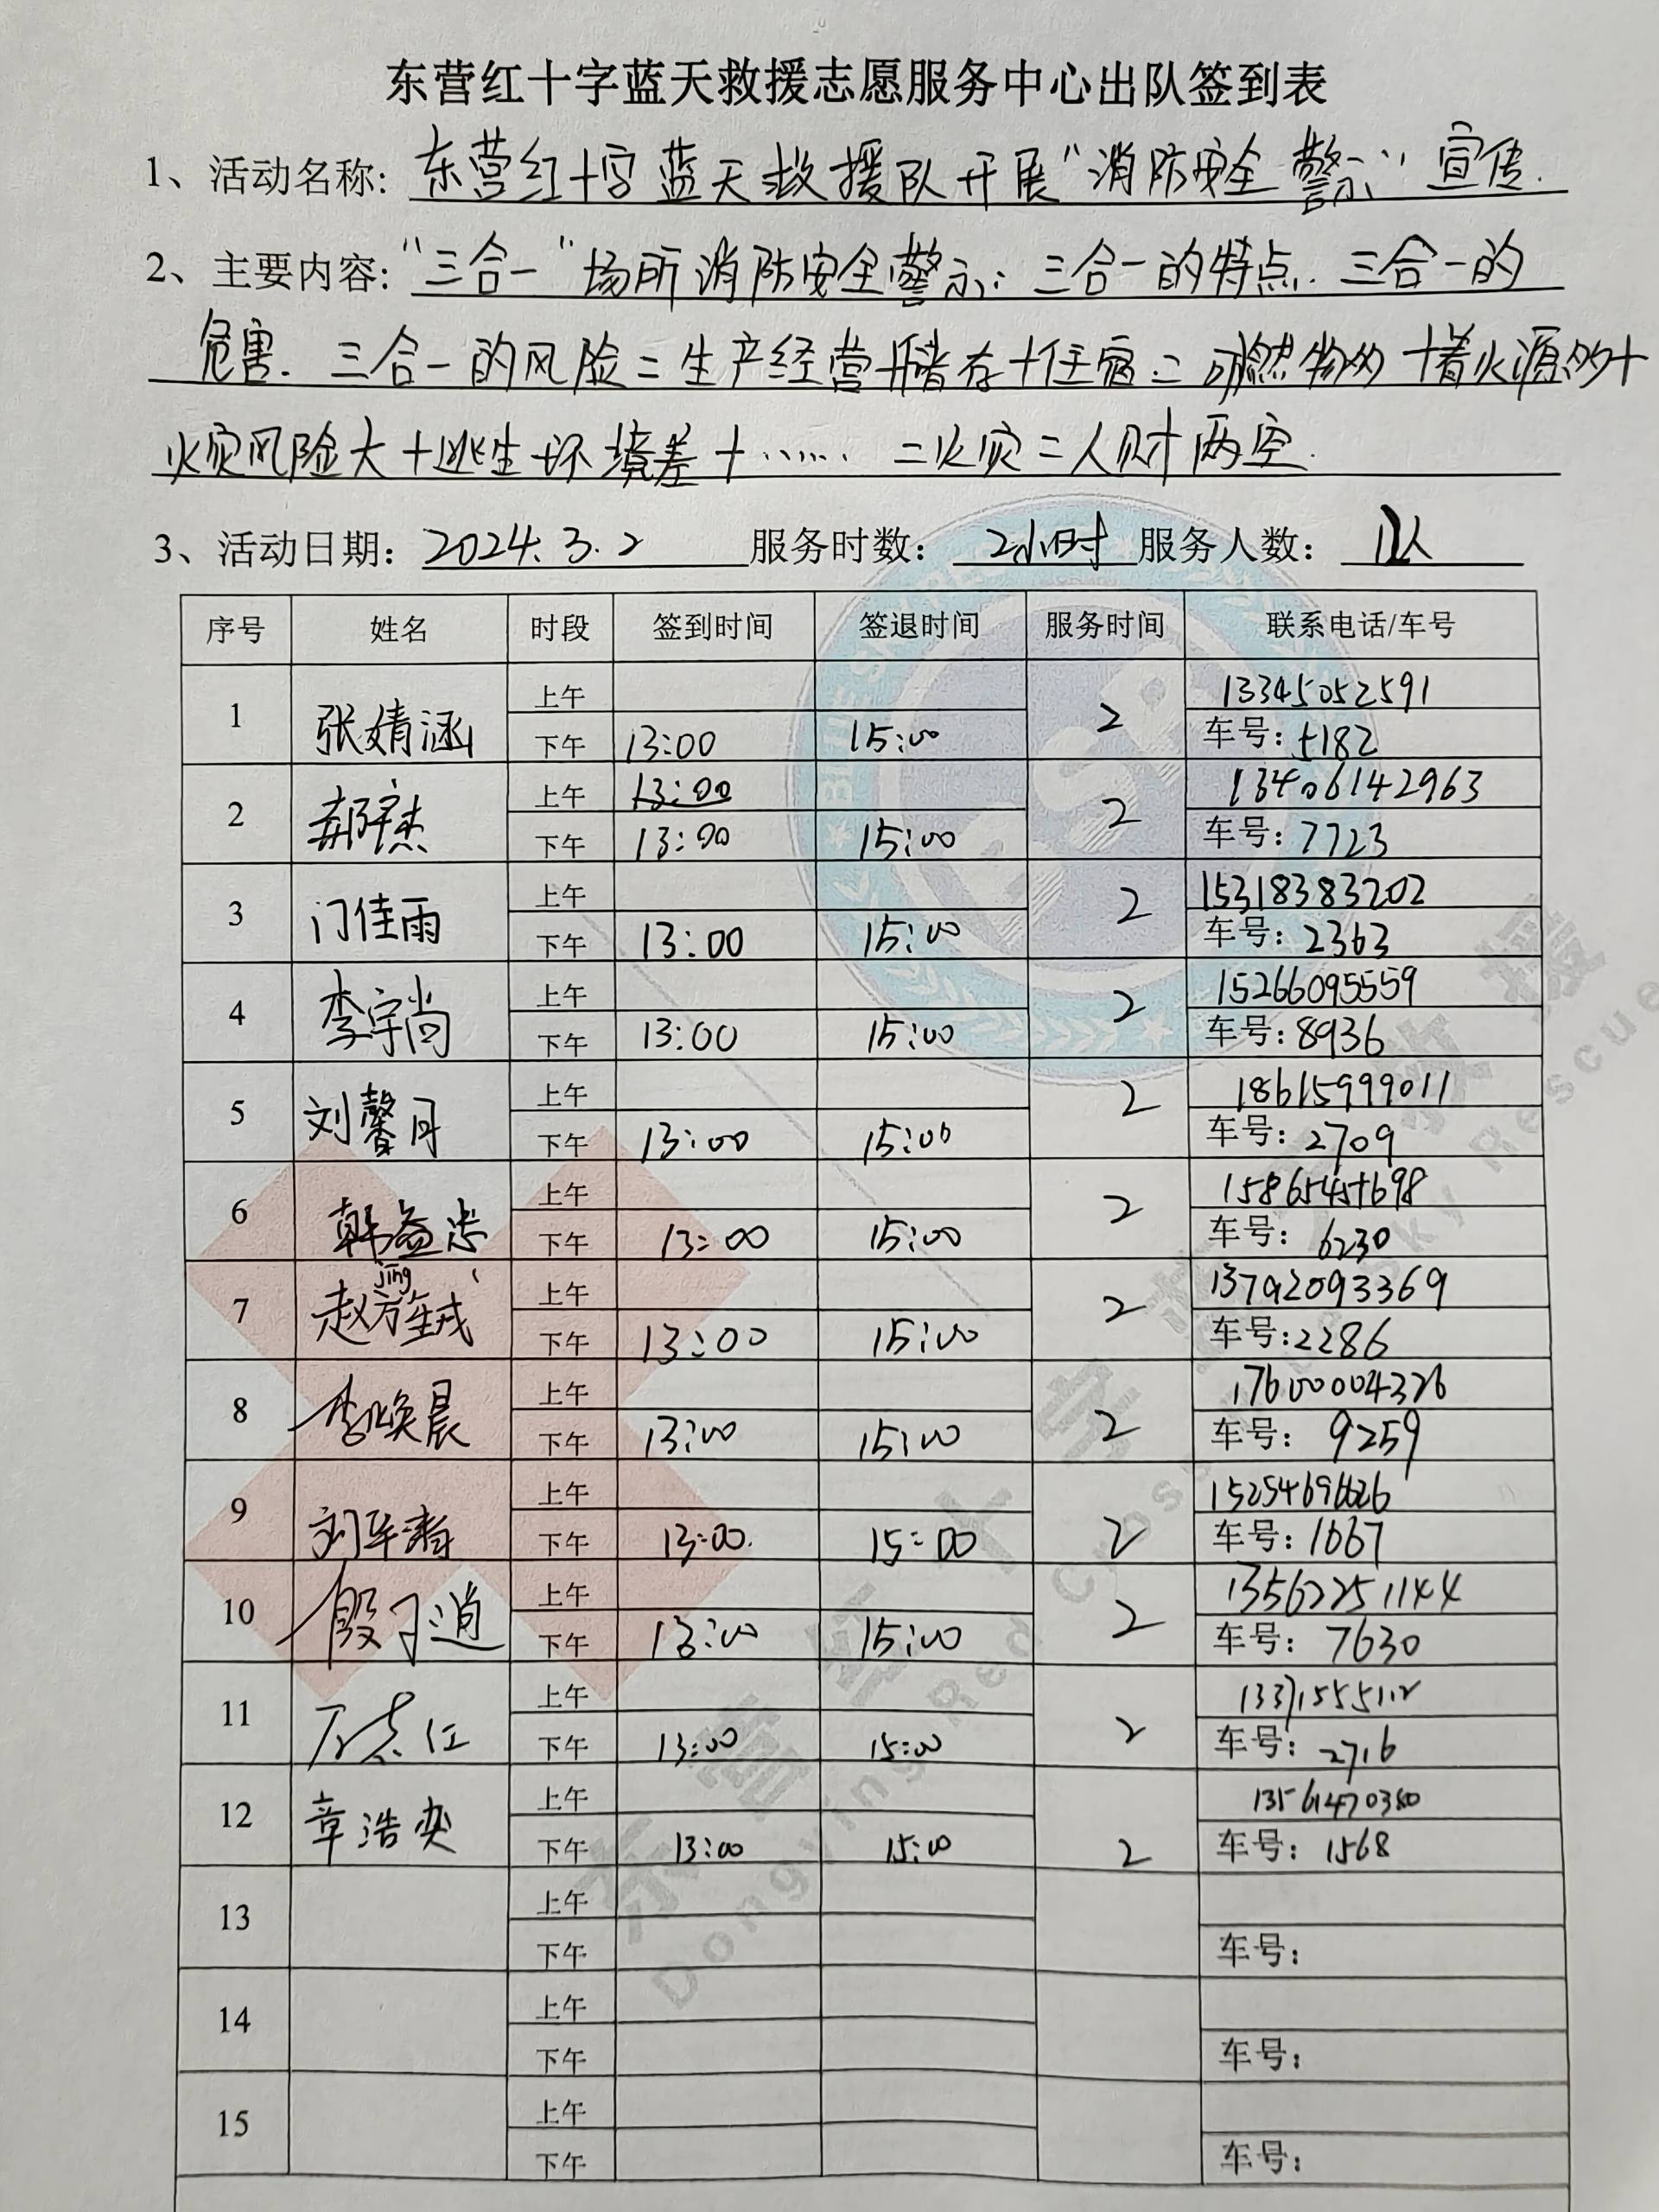 东营红十字蓝天救援志愿服务中心出队签到表
1、活动名称: 东营红十字蓝天救援队开展“消防安全警示”宣传.
2、主要内容: “三合一”场所消防安全警示: 三合一的特点. 三合一的
危害. 三合一的风险=生产经营+储存+住宿=可燃物多+着火源多+
火灾风险大+逃生环境差+...... =火灾=人财两空.
3、活动日期: 2024.3.2 服务时数: 2小时 服务人数: 12人
序号 姓名 时段 签到时间 签退时间 服务时间 联系电话/车号
1 张婧涵 上午 2 13345052591
下午 13:00 15:00 车号: 5182
2 郝宇杰 上午 13:00 2 13406142963
下午 13:00 15:00 车号: 7723
3 门佳雨 上午 2 15318383202
下午 13:00 15:00 车号: 2363
4 李宇尚 上午 2 15266095559
下午 13:00 15:00 车号: 8936
5 刘馨月 上午 2 18615999011
下午 13:00 15:00 车号: 2709
6 韩益忠 上午 2 15865451698
下午 13:00 15:00 车号: 6230
jīng
7 赵方 上午 2 13792093369
下午 13:00 15:00 车号: 2286
8 李焕晨 上午 2 17600004326
下午 13:00 15:00 车号: 9259
9 刘军涛 上午 2
下午 13:00. 15:00 车号: 1667
10 殷子逍 上午 2 13562251144
下午 13:00 15:00 车号: 7630
11 上午 2 13371555112
下午 13:00 15:00 车号: 2716
12 章浩奕 上午 2 13561470380
下午 13:00 15:00 车号: 1568
13 上午
下午 车号:
14 上午
下午 车号:
15 上午
下午 车号:
东营红十字蓝天救援
Dongying Red Cross Blue Sky Rescue